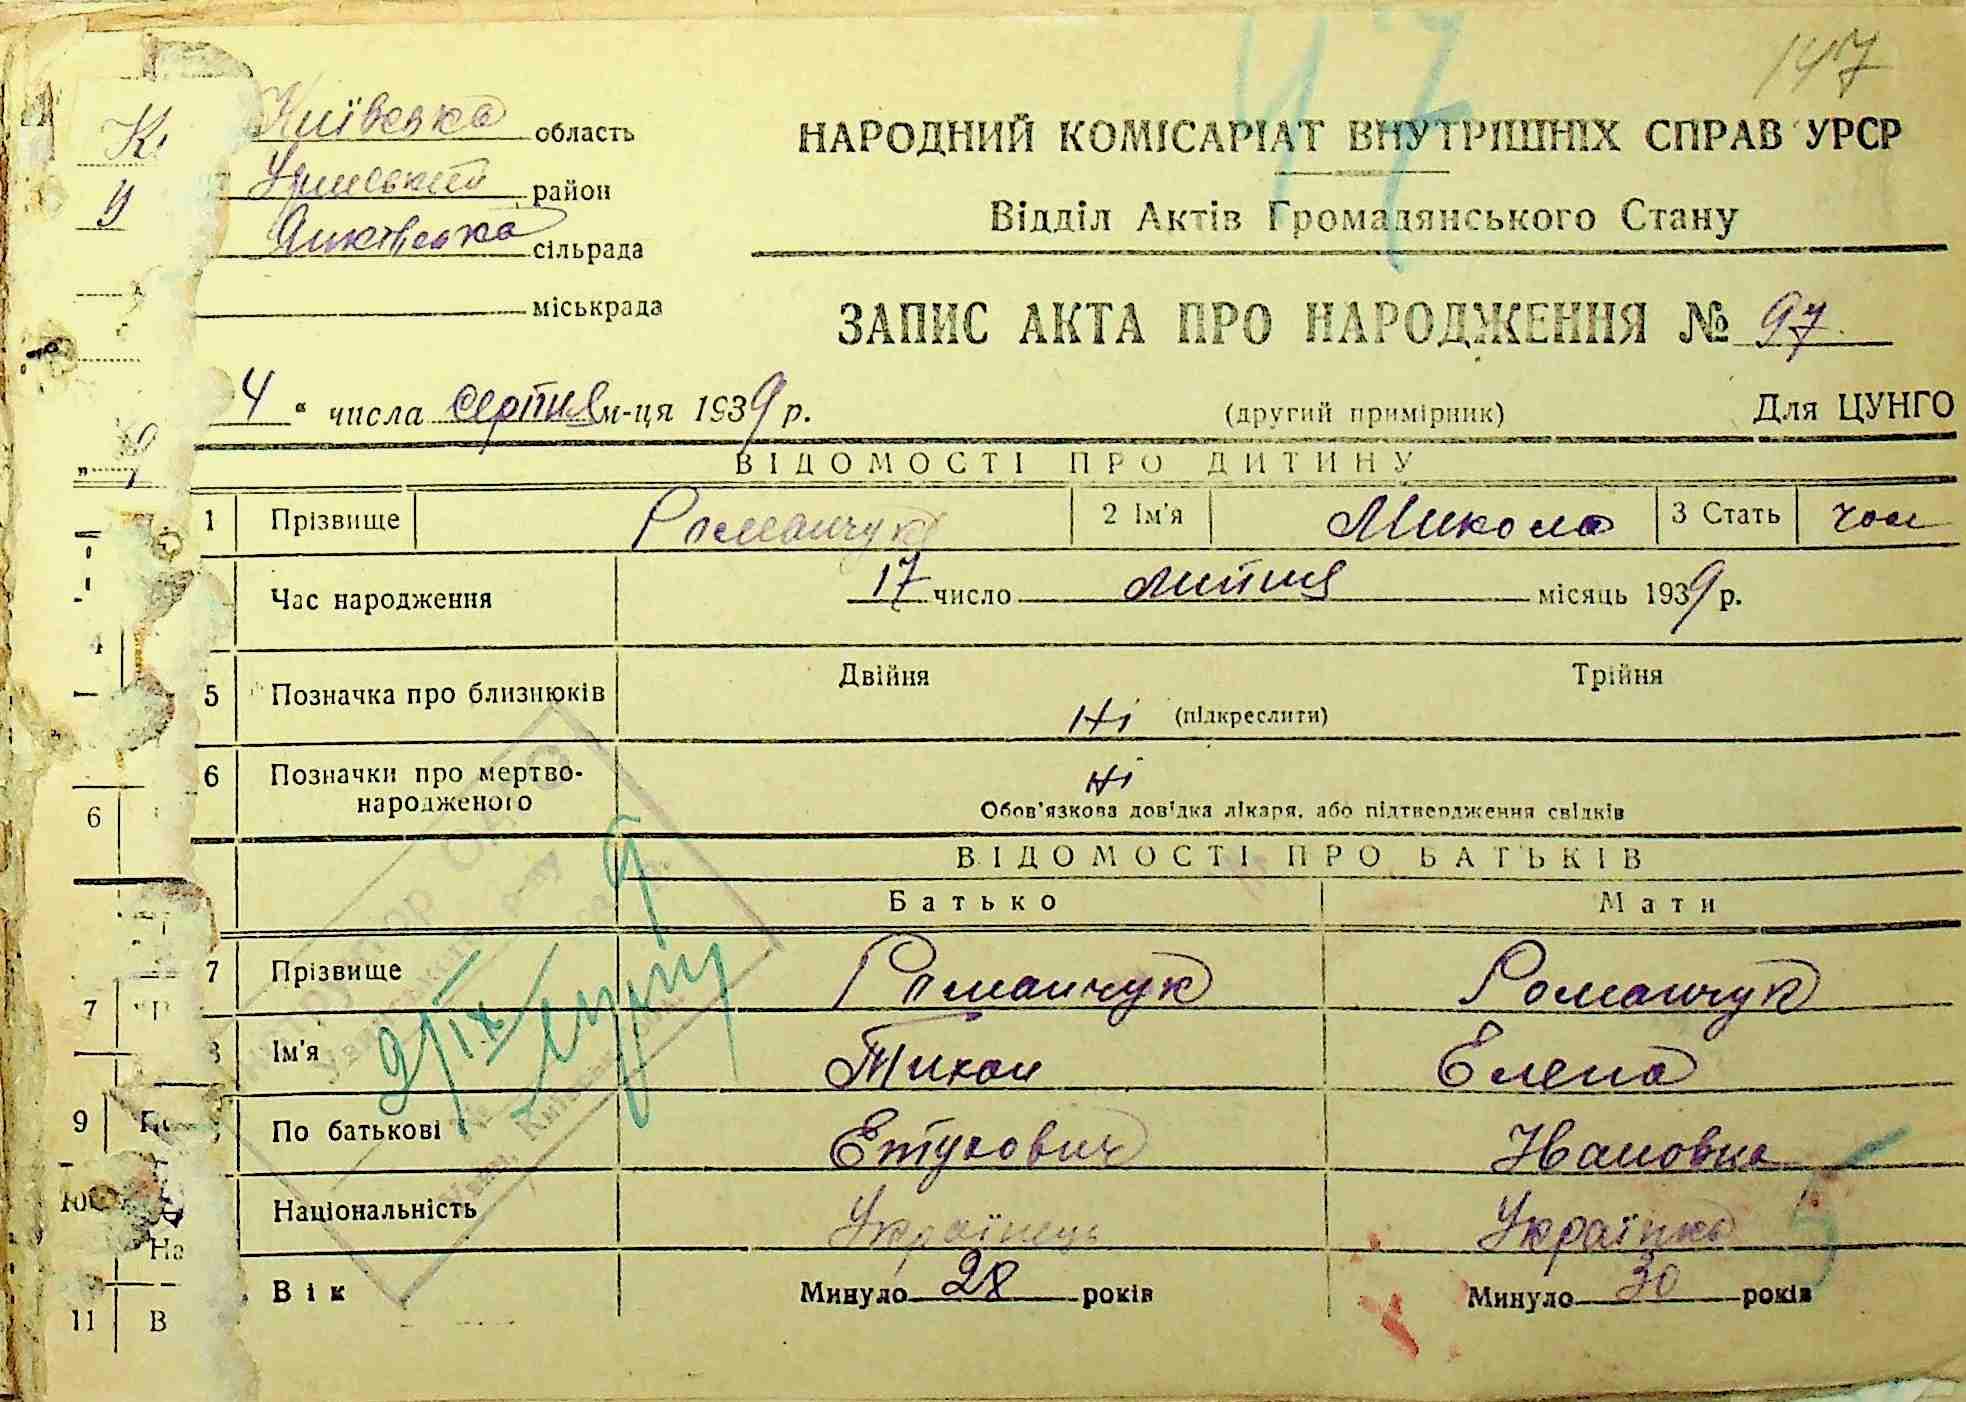 147
47
Київська область
район
сільрада
міськрада
НАРОДНИЙ КОМІСАРІАТ ВНУТРІШНІХ СПРАВ УРСР
Відділ Актів Громадянського Стану
ЗАПИС АКТА ПРО НАРОДЖЕННЯ № 97
4 " числа серпня м-ця 1939 р.
(другий примірник)
Для ЦУНГО
ВІДОМОСТІ ПРО ДИТИНУ
1 Прізвище Романчук 2 Ім'я Микола 3 Стать чол
Час народження 17 число липня місяць 1939 р.
5 Позначка про близнюків Двійня Трійня
Ні (підкреслити)
6 Позначки про мертво-
народженого
ні
Обов'язкова довідка лікаря, або підтвердження свідків
ВІДОМОСТІ ПРО БАТЬКІВ
Батько Мати
7 Прізвище Романчук Романчук
8 Ім'я Тихон Елена
По батькові Ивановна
Національність Українець Українка
Вік Минуло 28 років Минуло 30 років
6
7
9
10
На
11 В